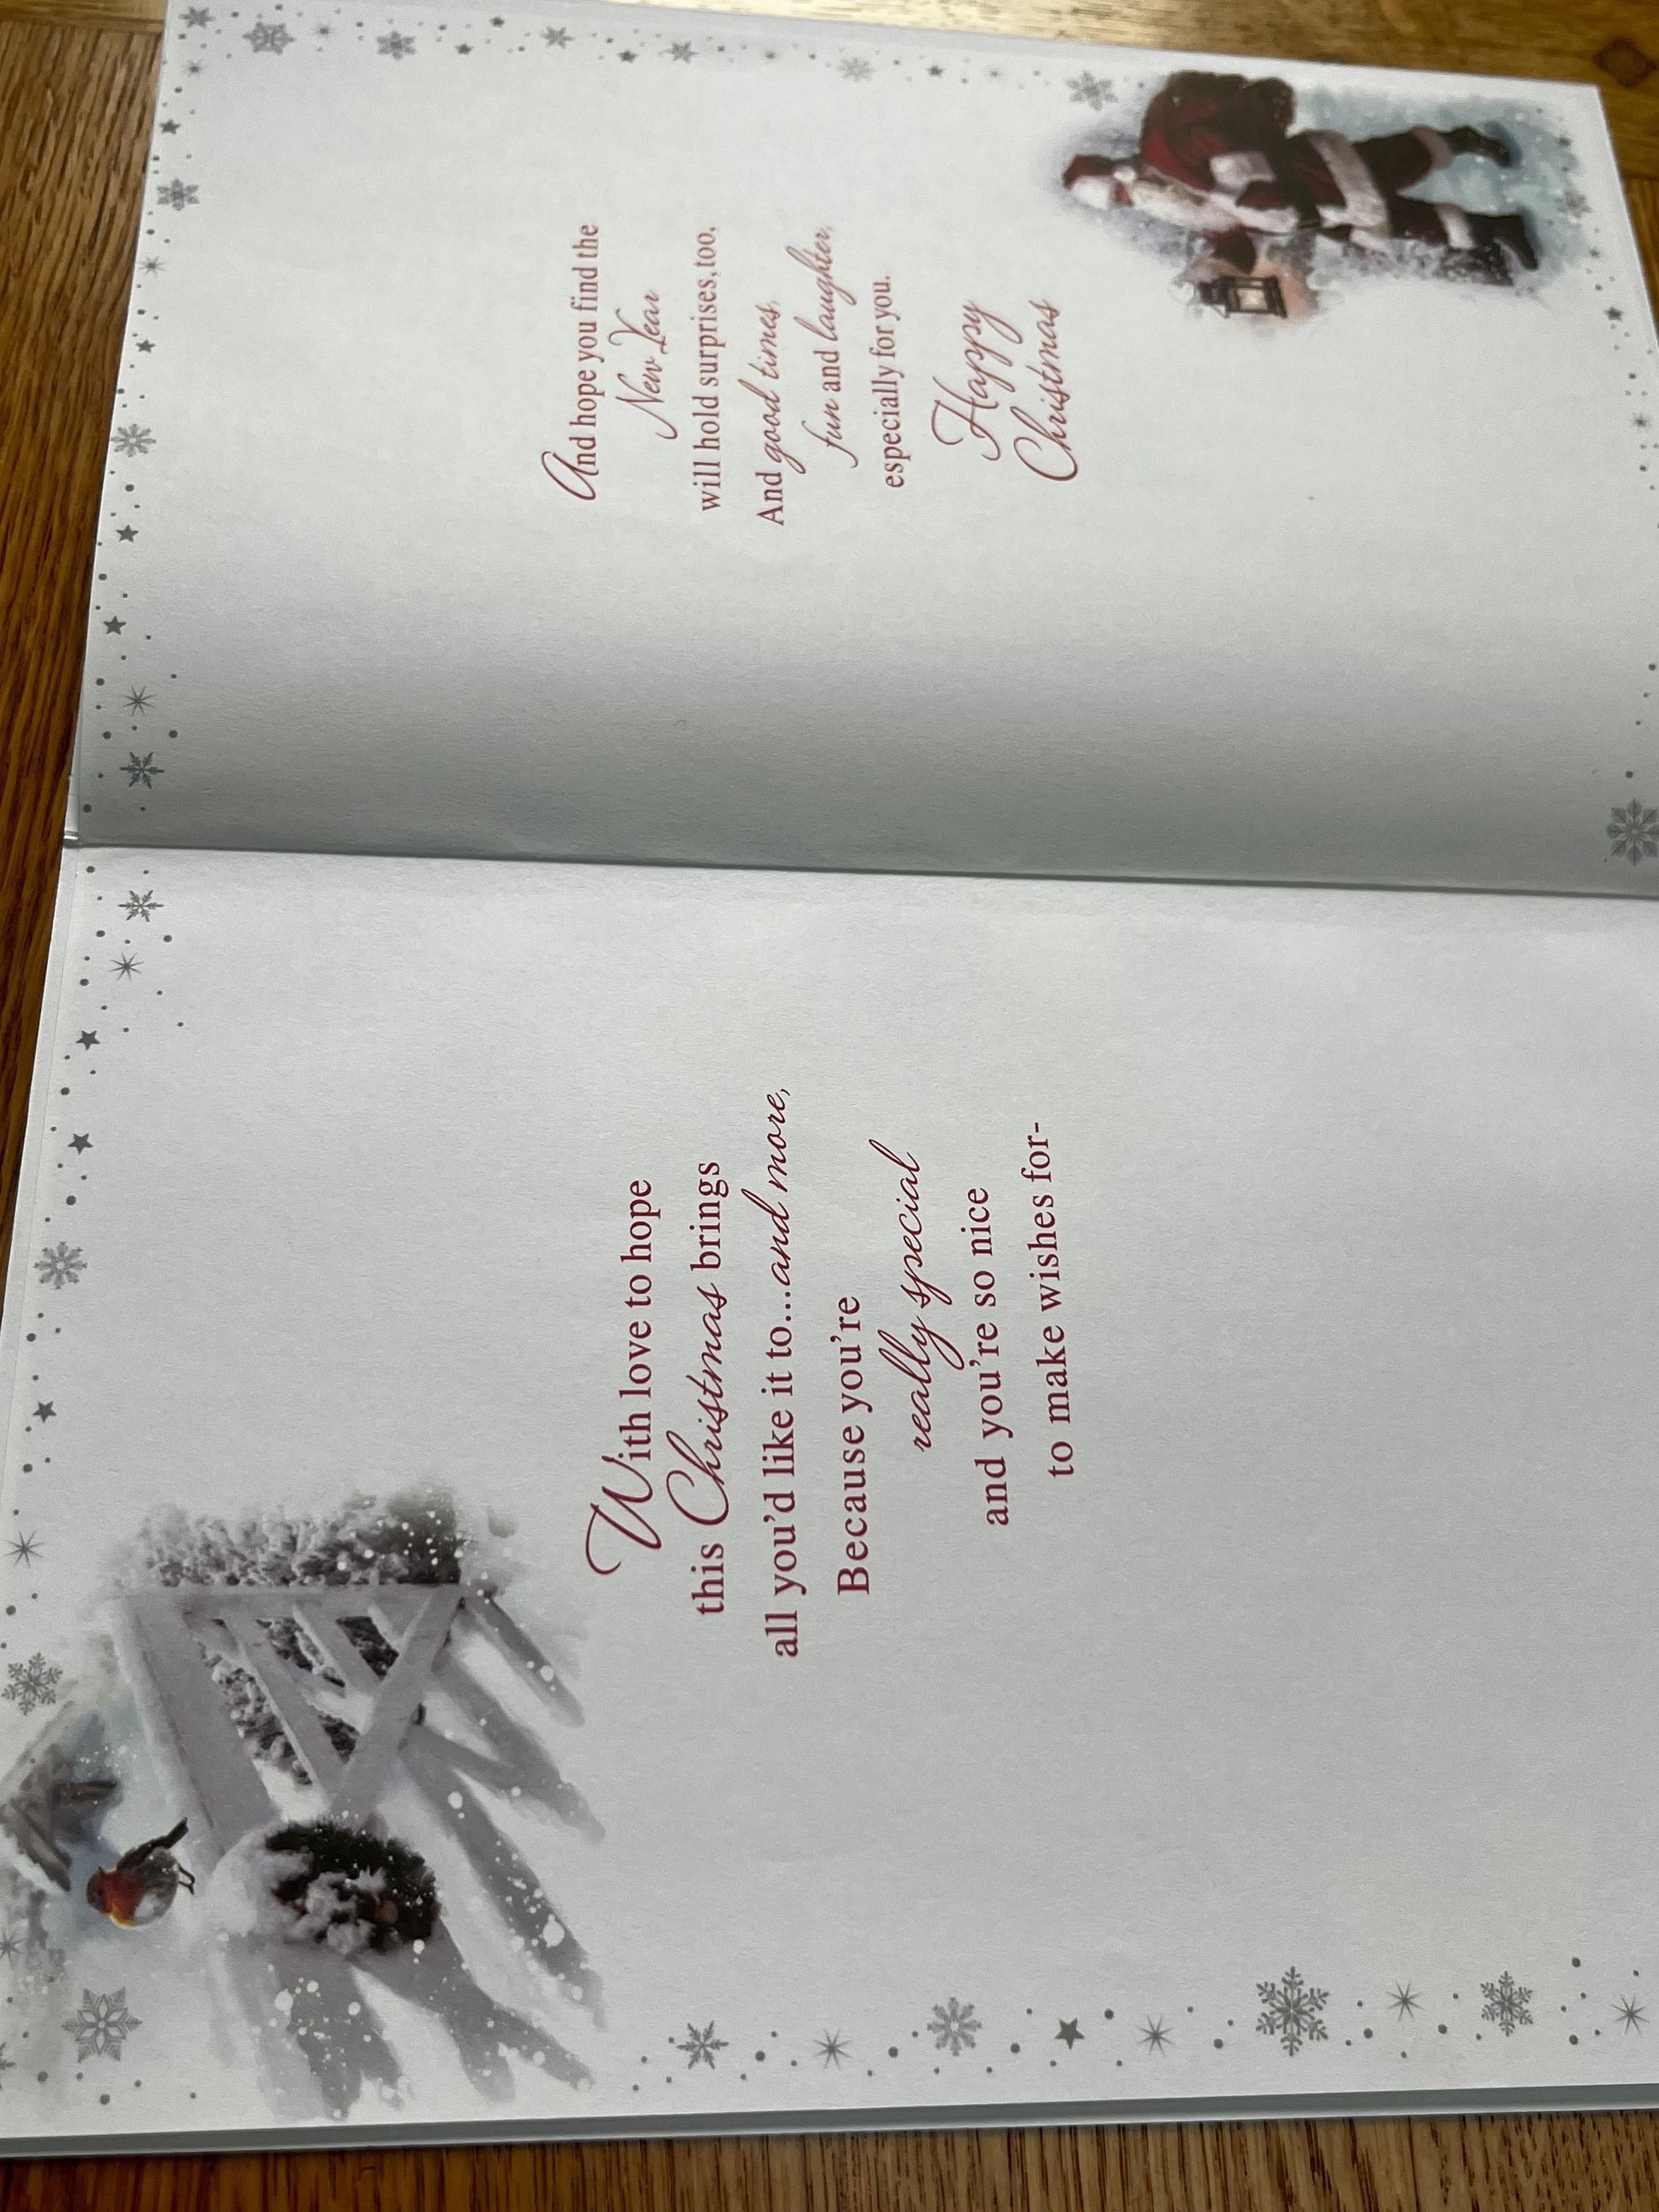 With love to hope
this Christmas brings
all you'd like it to...and more,
Because you're
really special
and you're so nice
to make wishes for-
And hope you find the
New Year
will hold surprises, too,
And good times,
fun and laughter,
especially for you.
Happy
Christmas